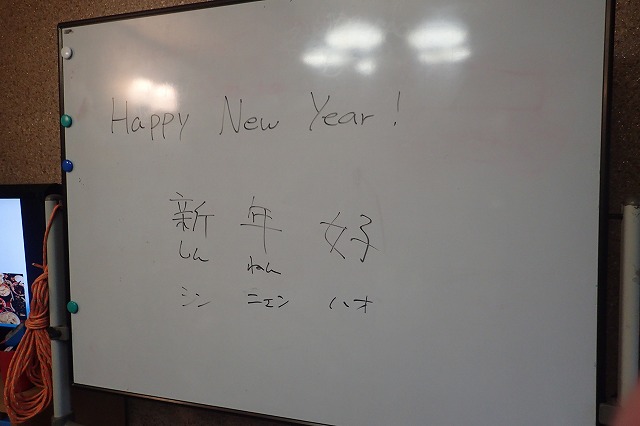 Happy New Year!
新年好
しん ねん
シン ニェン ハオ